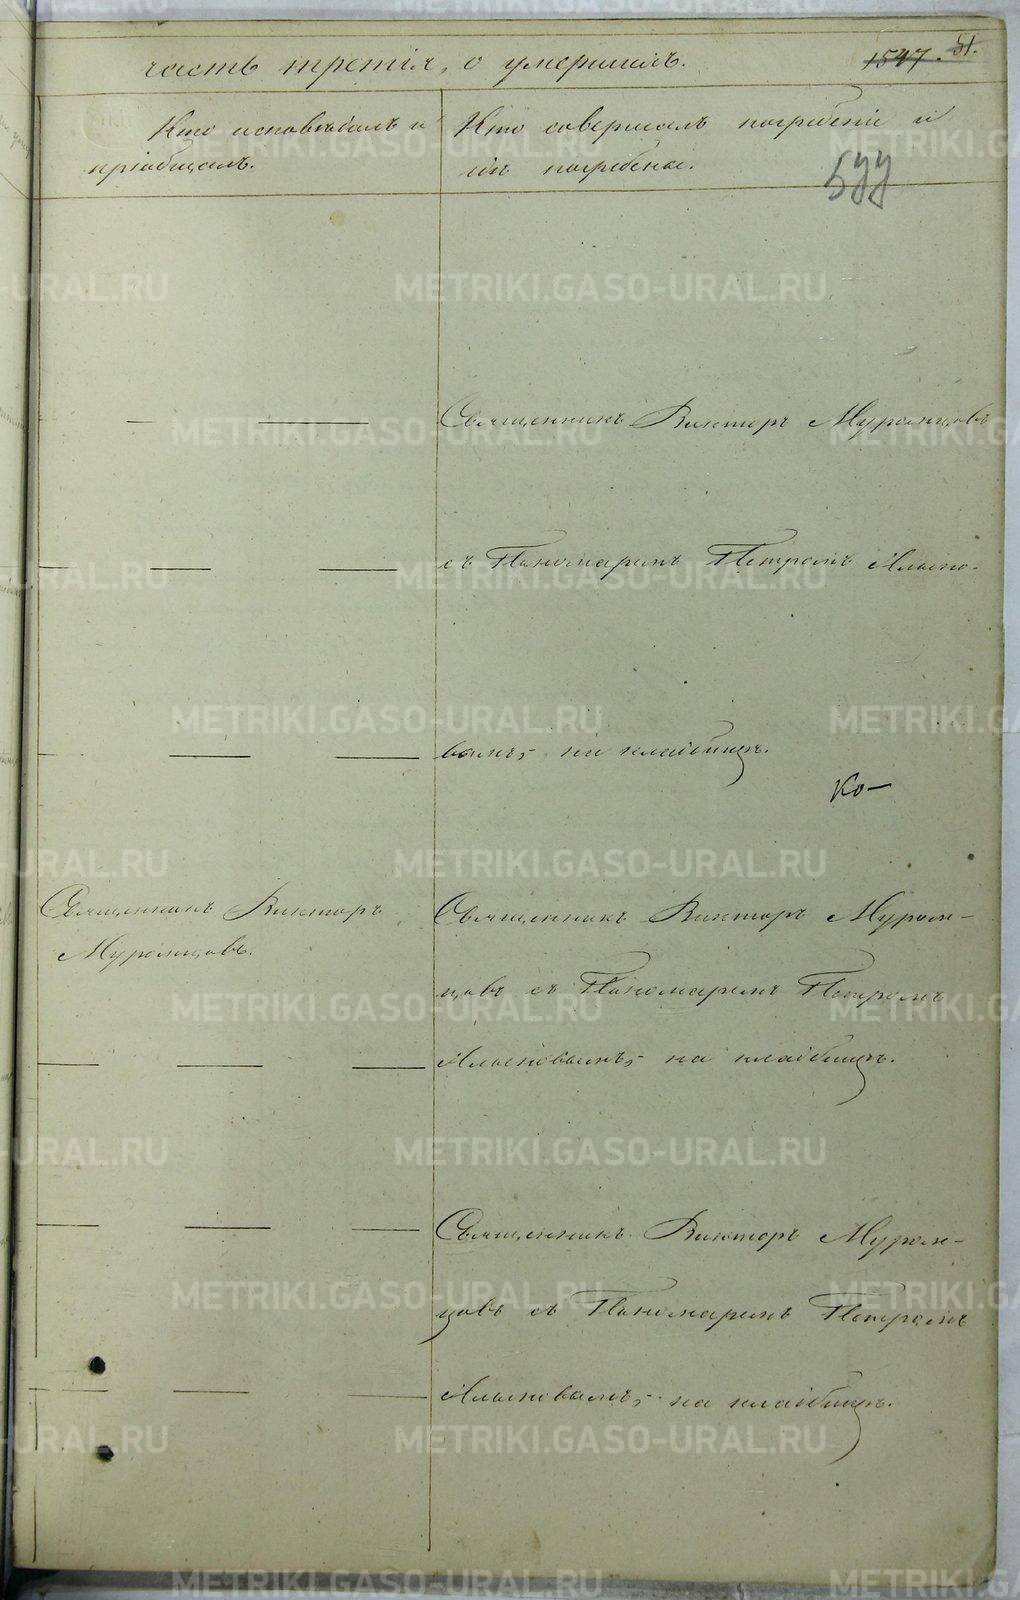 часть третія, о умершихъ.
1547. 51.
Кто исповѣдалъ и
пріобщалъ.
Кто совершалъ погребеніе и
гдѣ погребены.
577
Священникъ Викторъ Муромцовъ
съ Пономаремъ Петромъ
вымъ, на кладбищѣ.
Ко—
Священникъ Викторъ
Муромцовъ.
Священникъ Викторъ Муром-
цовъ съ Пономаремъ Петромъ
на кладбищѣ.
Священникъ Викторъ Муром-
цовъ съ Пономаремъ Петромъ
на кладбищѣ.
METRIKI.GASO-URAL.RU